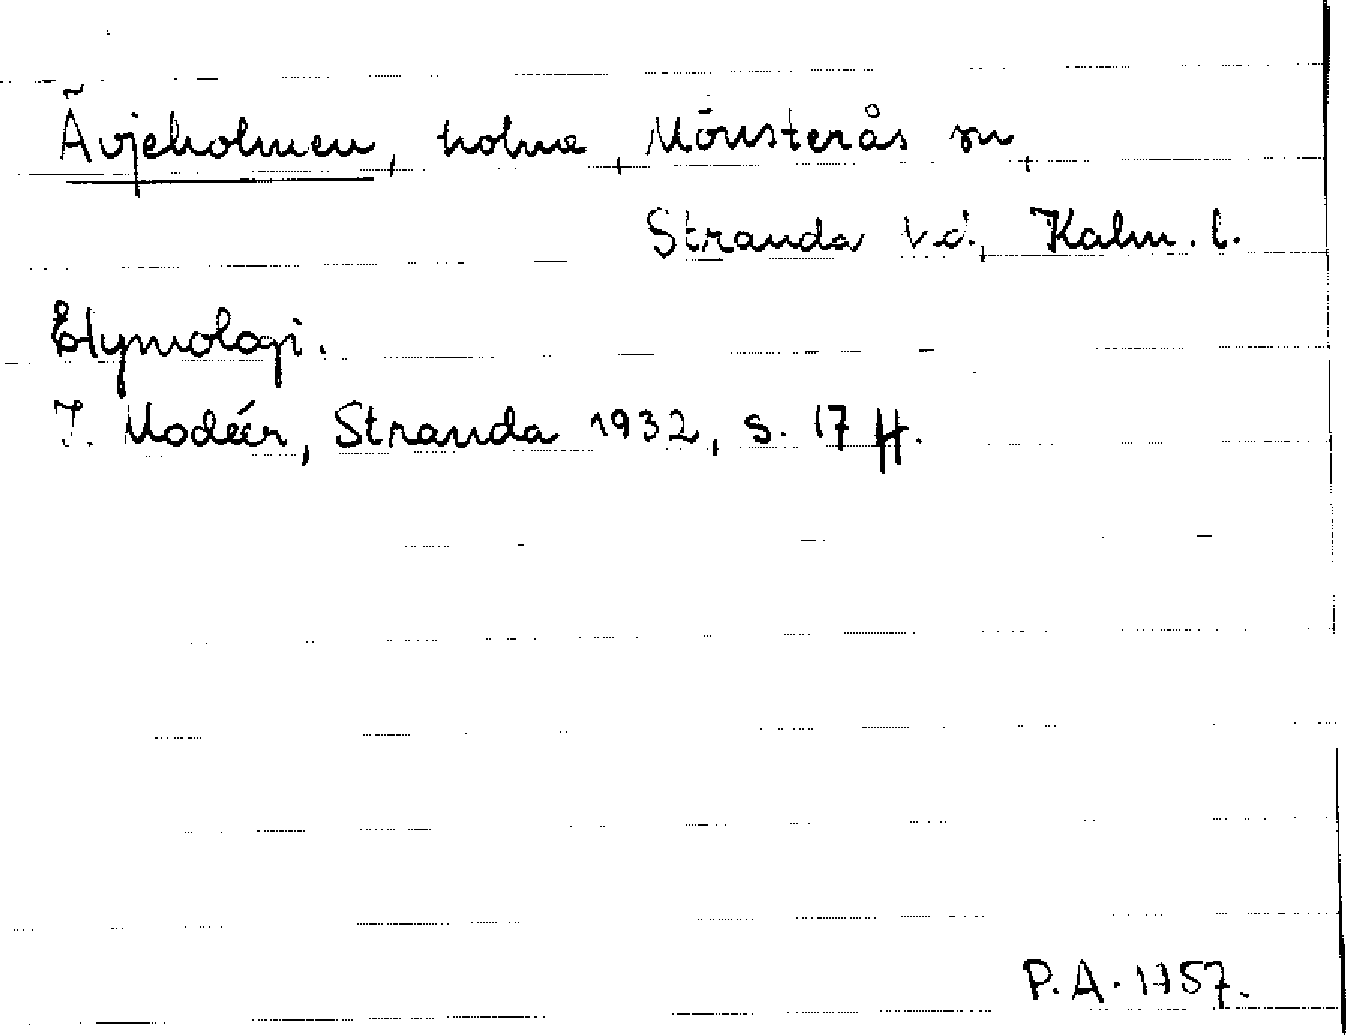 Ävjeholmen, holme, Mönsterås sn,
Stranda hd., Kalm. l.
Etymologi.
I. Modéer, Stranda 1932, s. 17 ff.
P.A. 1957.